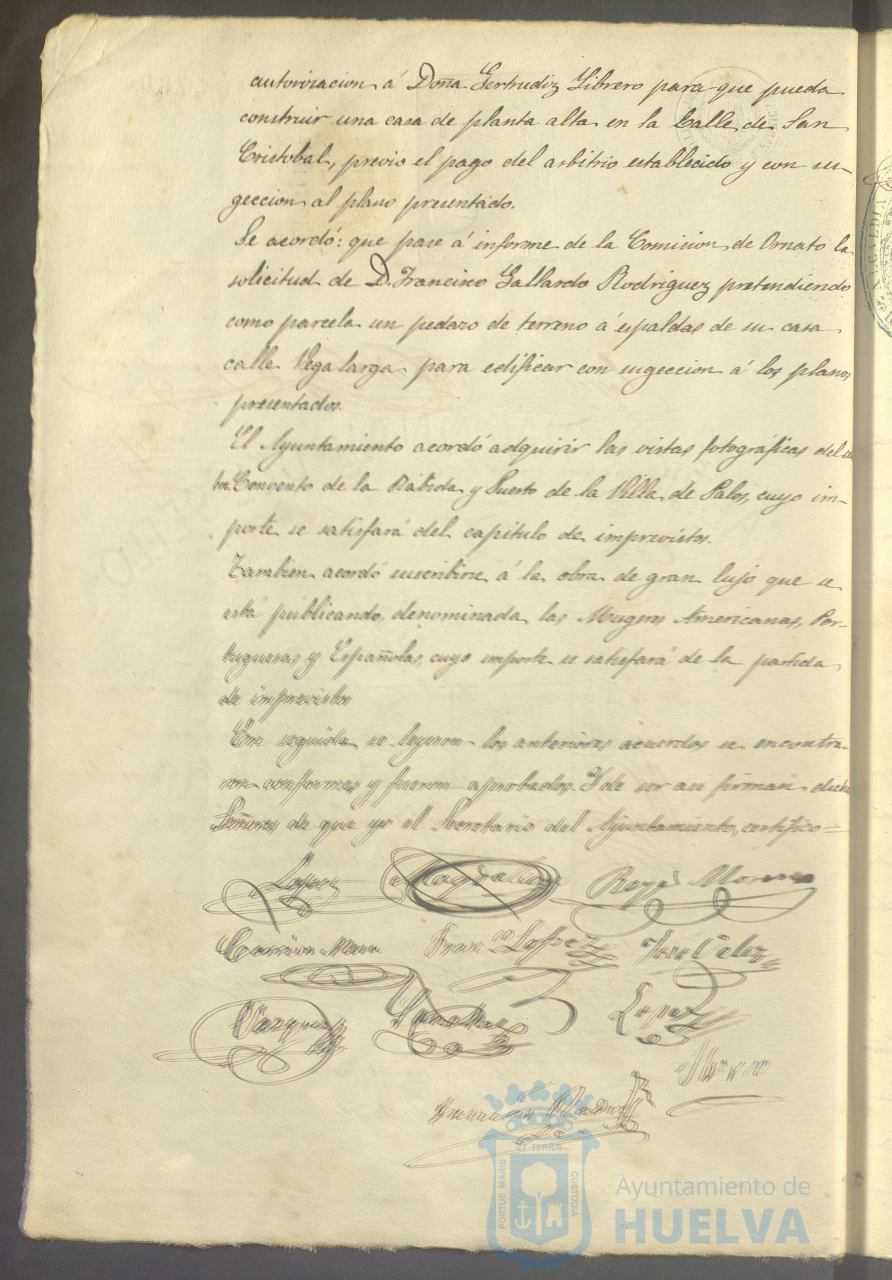 autorizacion á Doña Gertrudiz Librero para que pueda
construir una casa de planta alta en la Calle de San
Cristobal, previo el pago del arbitrio establecido y con su-
geccion al plano presentado.
Se acordó: que pase á informe de la Comision de Ornato la
solicitud de D. Francisco Gallardo Rodriguez pretendiendo
como parcela un pedazo de terreno á espaldas de su casa
calle Vega larga para edificar con sugeccion á los planos
presentados.
El Ayuntamiento acordó adquirir las vistas fotográficas del
Convento de la Rabida y Puerto de la Villa de Palos, cuyo im-
porte se satisfará del capitulo de imprevistos.
Tambien acordó suscribirse á la obra de gran lujo que se
está publicando, denominada las Mugeres Americanas, Por-
tuguesas y Españolas, cuyo importe se satisfará de la partida
de imprevistos
En seguida se leyeron los anteriores acuerdos se encontra-
ron conformes y fueron aprobados. Y de ser asi firman dichos
Señores de que yo el Secretario del Ayuntamiento, certifico=
Lopez Moreno
Franco Lopez José Velez
Vazquez Lopez
PORTUS MARIS
ET TERRAE
CUSTODIA
Ayuntamiento de
HUELVA
ALCALDIA